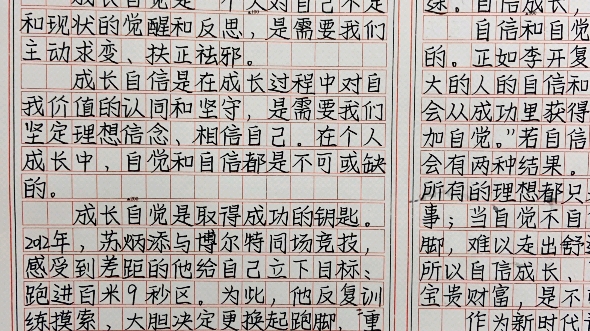 成长自觉是一个人对自己不足
和现状的觉醒和反思，是需要我们
主动求变、扶正祛邪。
成长自信是在成长过程中对自
我价值的认同和坚守，是需要我们
坚定理想信念、相信自己。在个人
成长中，自觉和自信都是不可或缺
的。
成长自觉是取得成功的钥匙。
2012年，苏炳添与博尔特同场竞技，
感受到差距的他给自己立下目标：
跑进百米9秒区。为此，他反复训
练摸索，大胆决定更换起跑脚，重
途。自信成长，
自信和自觉
的。正如李开复
大的人的自信和
会从成功里获得
加自觉。”若自信
会有两种结果。
所有的理想都只
事；当自觉不自
脚，难以走出舒
所以自信成长、
宝贵财富，是不
作为新时代